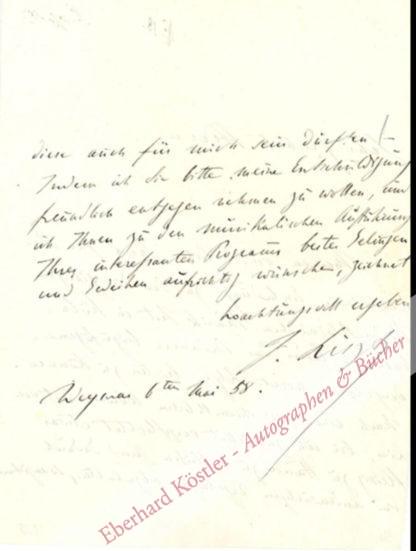 diese auch für mich sein dürften! –
Indem ich Sie bitte meine Entschuldigung
freundlich entgegen nehmen zu wollen, und
ich Ihnen zu den musikalischen Aufführung
Ihres interessanten Programs besten Gelingen
und Gedeihen aufrichtig wünschen, zeichnet
hochachtungsvoll ergeben
F. Liszt
Weymar 6ten Mai 58.
Eberhard Köstler - Autographen & Bücher